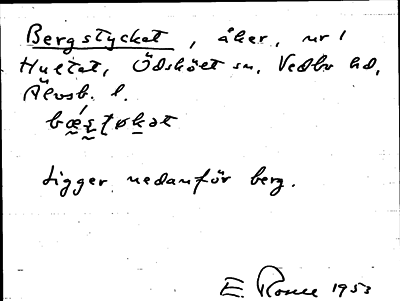 Bergstycket, åker, nr 1
Hultet, Ödskölt sn, Vedbo hd,
Älvsb. l.
Ligger nedanför berg.
E. 1953